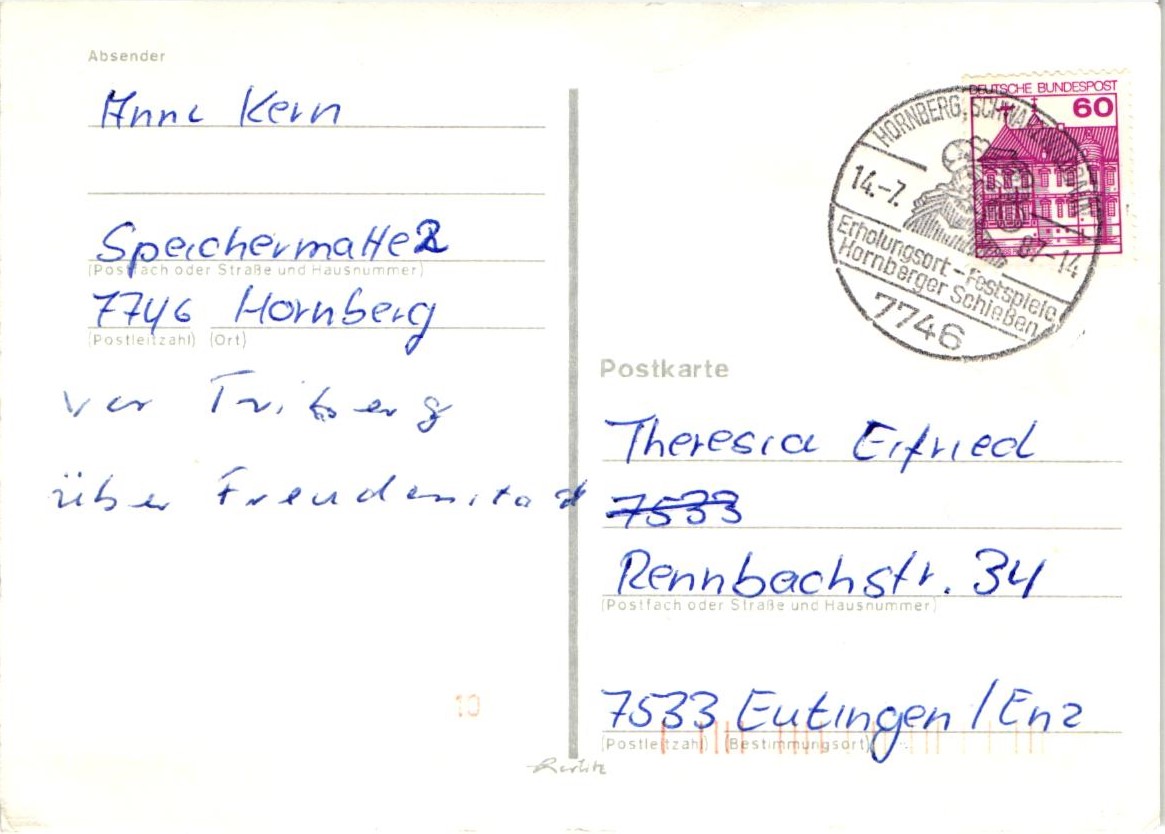 Absender
Anna Kern
Speichermatte 2
(Postfach oder Straße und Hausnummer)
7746 Hornberg
(Postleitzahl) (Ort)
vor Triberg
über Freudenstadt
10
DEUTSCHE BUNDESPOST
60
HORNBERG, SCHWARZWALDBAHN
14.-7. 87-14
Erholungsort - Festspiele
Hornberger Schießen
7746
Postkarte
Theresia Eifried
7533
Rennbachstr. 34
(Postfach oder Straße und Hausnummer)
7533 Eutingen / Enz
(Postleitzahl) (Bestimmungsort)
Herlitz